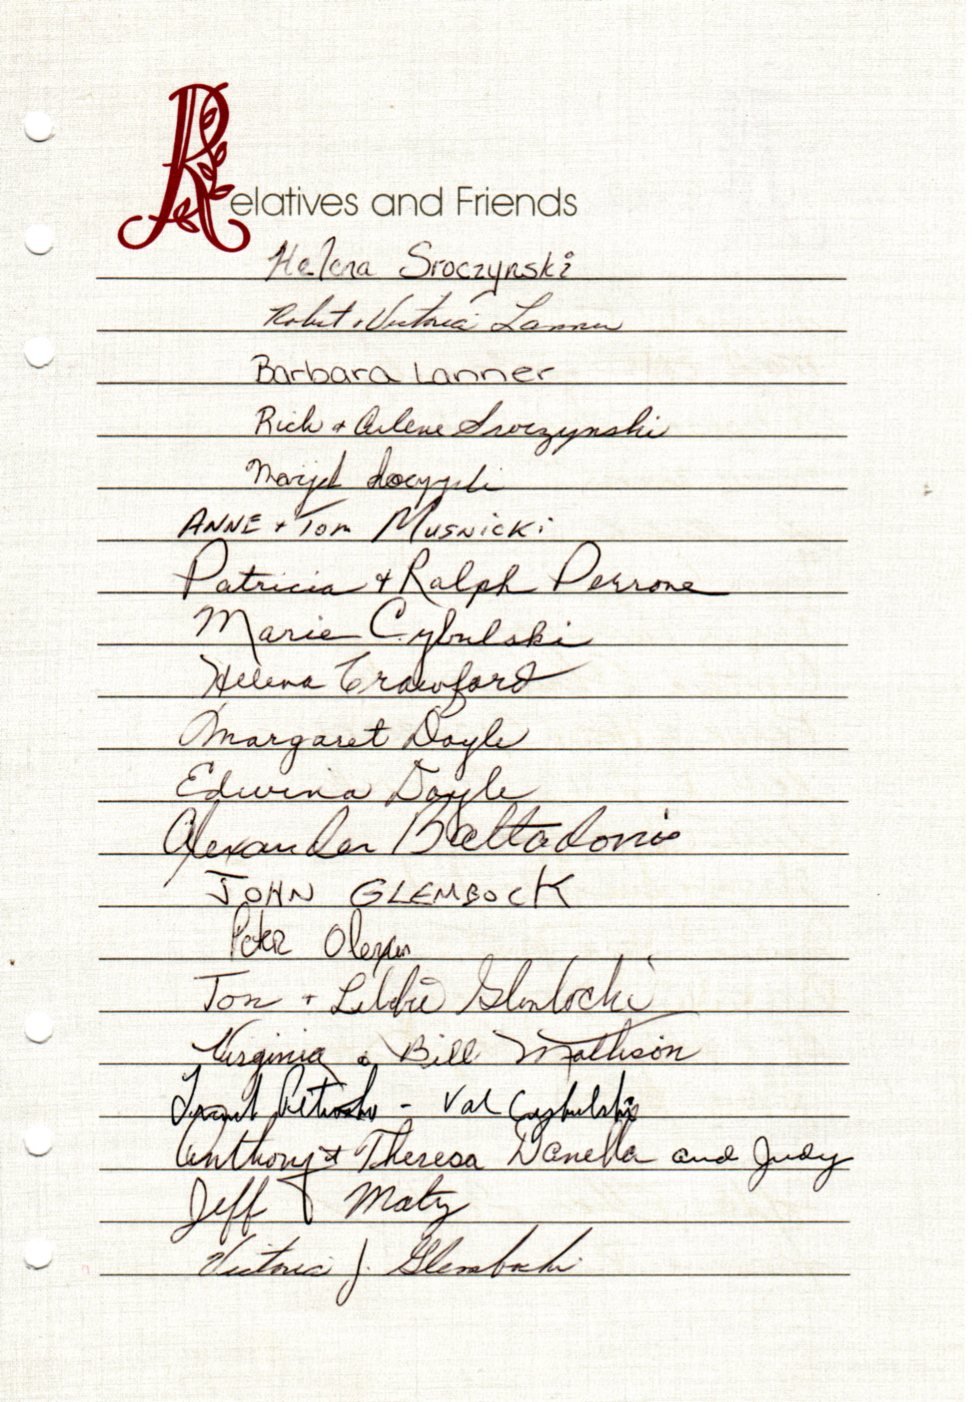 Relatives and Friends
Helena Sroczynski
Robert + Victoria Lanner
Barbara Lanner
Rich + Arlene Sroczynski
ANNE + Tom MUSNICKi
Patricia + Ralph Perrone
Marie Cybulski
Helena Crawford
Margaret Doyle
Edwina Doyle
Alexander Baltadonis
JOHN GLEMBOCK
Peter
Tom + Libbie Glembocki
Virginia & Bill Mathison
Frank - Val Cybulski
Anthony & Theresa Danella and Judy
Jeff Maty
Victoria J. Glembocki